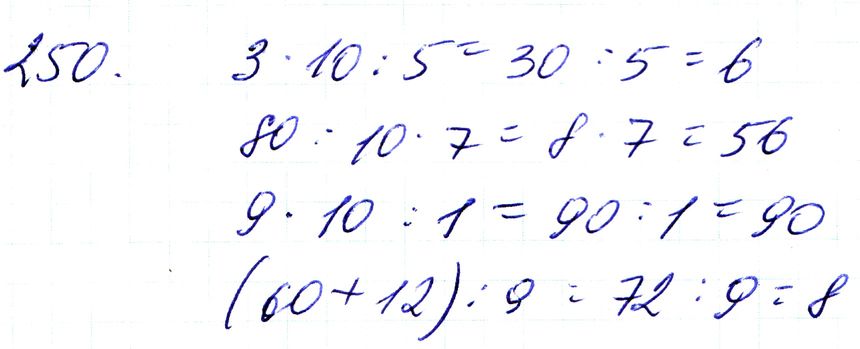 250. 3 · 10 : 5 = 30 : 5 = 6
80 : 10 · 7 = 8 · 7 = 56
9 · 10 : 1 = 90 : 1 = 90
(60 + 12) : 9 = 72 : 9 = 8